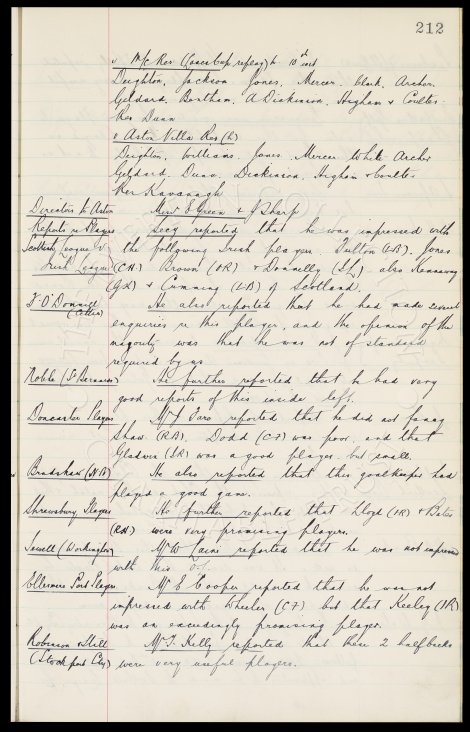 212
v M/c Res (Lancs Cup replay) h 10th inst
Deighton, Jackson Jones, Mercer, Clark, Archer,
Geldard, Bentham, A Dickinson, Higham & Coulter
Res Dunn
v Aston Villa Res (h)
Deighton, Williams, Jones, Mercer White Archer
Geldard, Dunn, Dickinson, Higham & Coulter
Res Kavanagh
Directors to Aston Messrs E Green & J Sharp
Reports re Players Secy reported that he was impressed with
Scottish League v the following Irish player Fulton (LB). Jones
Irish League (CH) Brown (OR) & Donnelly also Kennaway
(GK) & Cumming (LB) of Scotland.
F O'Donnell He also reported that he had made recent
(Celtic) enquiries re this player, and the opinion of the
majority was that he was not of standard
required by us
Noble (St Bernards) He further reported that he had very
good reports of this inside left.
Doncaster Players Mr J reported that he did not fancy
Shaw (RB), Dodd (CF) was poor, and that
Gladwin (IR) was a good player but small.
Bradshaw (NB) He also reported that this goalkeeper had
played a good game.
Shrewsbury Players He further reported that Lloyd (IR) & Bates
(RH) were very promising players.
(Workington) Mr W reported that he was not impressed
with this
Ellesmere Port Players Mr E Cooper reported that he was not
impressed with Wheeler (CF) but that Keeley (IR)
was an exceedingly promising player.
Robinson & Hill Mr T. Kelly reported that these 2 halfbacks
(Stockport Cty) were very useful players.